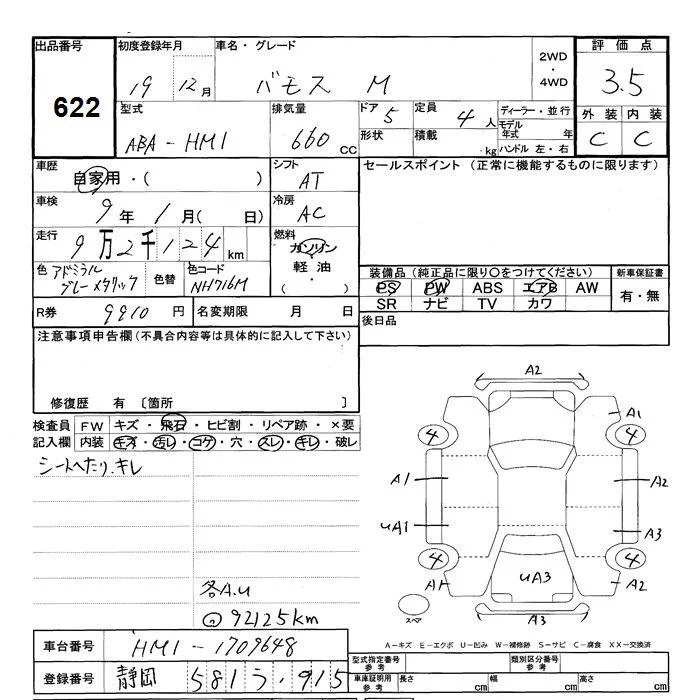 出品番号 622
初度登録年月 19 12月
車名・グレード バモス M
2WD・4WD
評価点 3.5
外装 内装
C C
型式 ABA-HM1
排気量 660 CC
ドア 5
形状
定員 4人
積載 kg
ディーラー・並行
モデル年式 年
ハンドル 左・右
車歴 自家用・( )
シフト AT
セールスポイント (正常に機能するものに限ります)
車検 9年1月( 日)
冷房 AC
走行 9万2千124km
燃料 ガソリン 軽油・
色 アドミラルグレーメタリック
色替
色コード NH716M
装備品 (純正品に限り○をつけてください)
PS PW ABS エアB AW
SR ナビ TV カワ
新車保証書
有・無
R券 9910円
名変期限 月 日
後日品
注意事項申告欄 (不具合内容等は具体的に記入して下さい)
修復歴 有 〔箇所 〕
検査員記入欄
FW キズ・飛石・ヒビ割・リペア跡・×要
内装 キズ・汚レ・コゲ・穴・スレ・キレ・破レ
シートへたり、キレ
各A.U
92125km
A2
4 A1
4
A1 A2
UA1 A3
4 4
A1 UA3 A2
スペア
A3
A-キズ E-エクボ U-凹み W-補修跡 S-サビ C-腐食 XX-交換済
車台番号 HM1-1709648
登録番号 静岡 581う・915
型式指定番号 参考
類別区分番号 参考
車庫証明用 参考
長さ cm 幅 cm 高さ cm